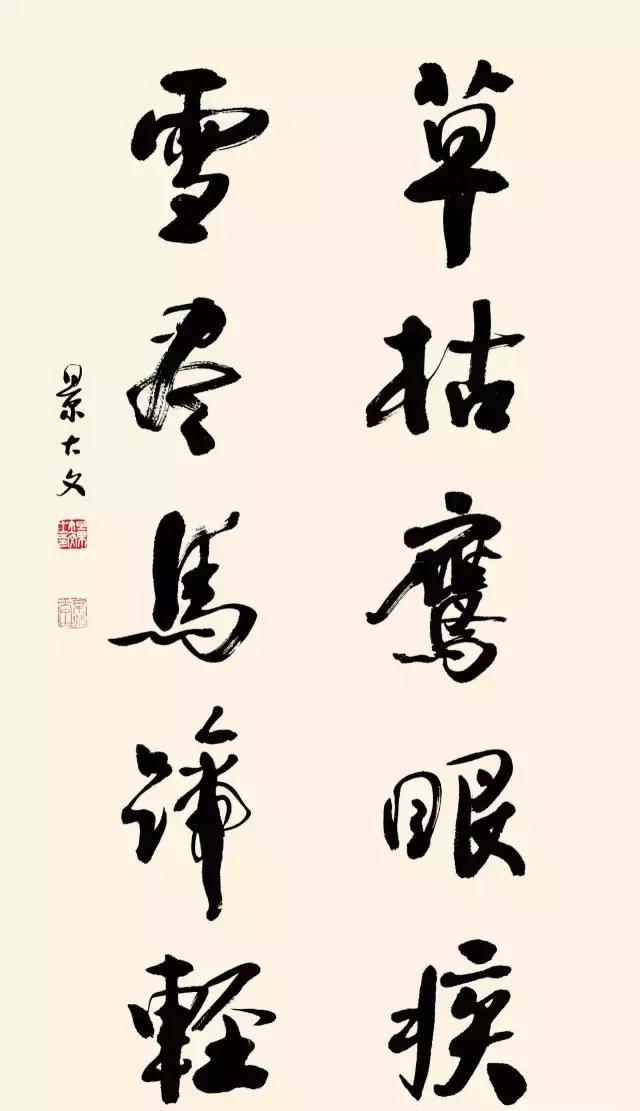 草枯鹰眼疾
雪尽馬蹄輕
景大文